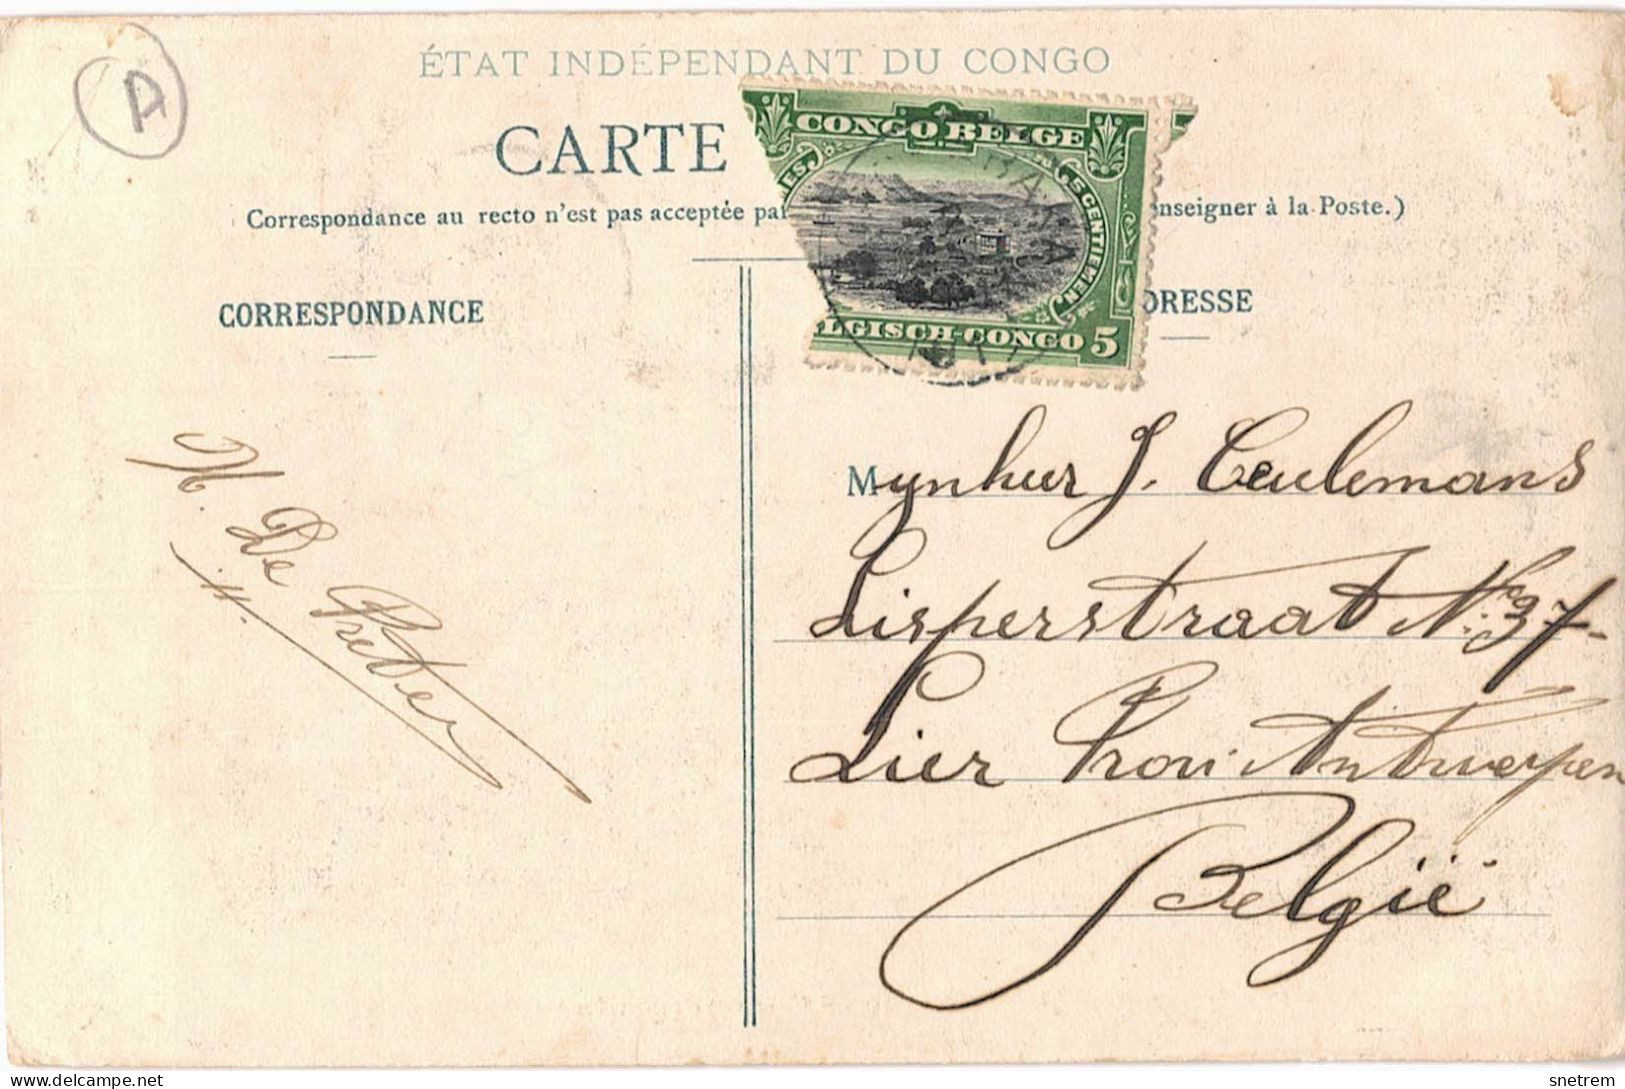 A
ÉTAT INDÉPENDANT DU CONGO
CARTE
Correspondance au recto n'est pas acceptée par
nseigner à la Poste.)
CONGO BELGE
5 CENTIEMEN
LGISCH-CONGO 5
CORRESPONDANCE
DRESSE
Mynheer J. Ceulemans
Lisperstraat No 37-
Lier Prov Antwerpen
België
De Preter
delcampe.net
snetrem